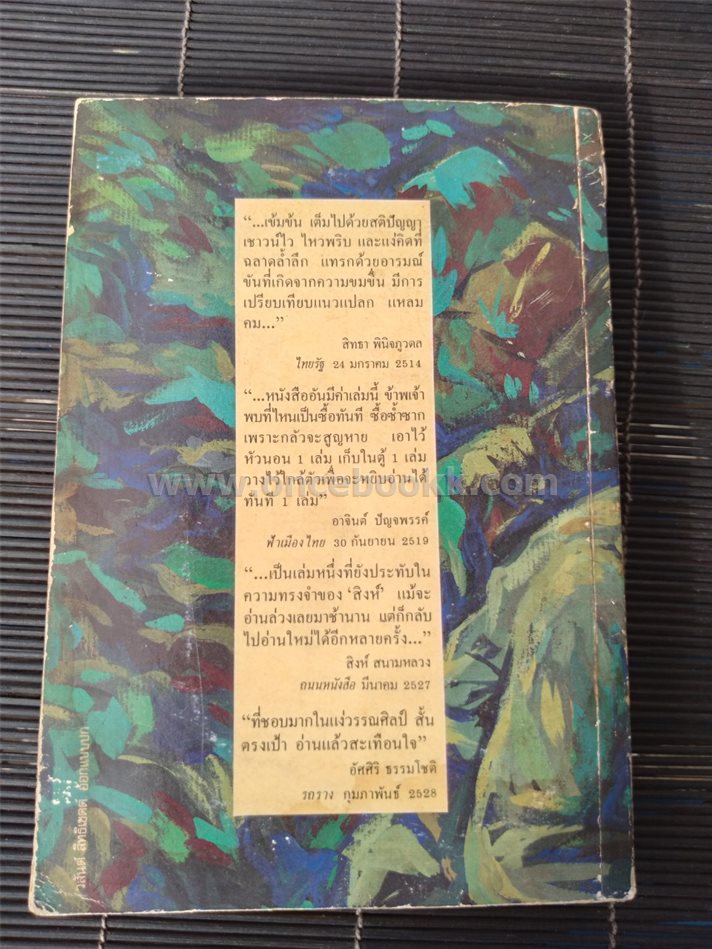 “...เข้มข้น เต็มไปด้วยสติปัญญา
เชาวน์ไว ไหวพริบ และแง่คิดที่
ฉลาดล้ำลึก แทรกด้วยอารมณ์
ขันที่เกิดจากความขมขื่น มีการ
เปรียบเทียบแนวแปลก แหลม
คม...”
สิทธา พินิจภูวดล
ไทยรัฐ 24 มกราคม 2514
“...หนังสืออันมีค่าเล่มนี้ ข้าพเจ้า
พบที่ไหนเป็นซื้อทันที ซื้อซ้ำซาก
เพราะกลัวจะสูญหาย เอาไว้
หัวนอน 1 เล่ม เก็บในตู้ 1 เล่ม
วางไว้ใกล้ตัวเพื่อจะหยิบอ่านได้
ทันที 1 เล่ม”
อาจินต์ ปัญจพรรค์
ฟ้าเมืองไทย 30 กันยายน 2519
“...เป็นเล่มหนึ่งที่ยังประทับใน
ความทรงจำของ ‘สิงห์’ แม้จะ
อ่านล่วงเลยมาช้านาน แต่ก็กลับ
ไปอ่านใหม่ได้อีกหลายครั้ง...”
สิงห์ สนามหลวง
ถนนหนังสือ มีนาคม 2527
“ที่ชอบมากในแง่วรรณศิลป์ สั้น
ตรงเป้า อ่านแล้วสะเทือนใจ”
อัศศิริ ธรรมโชติ
รถราง กุมภาพันธ์ 2528
วสันต์ สิทธิเขตต์ ออกแบบปก
www.oncebookk.com